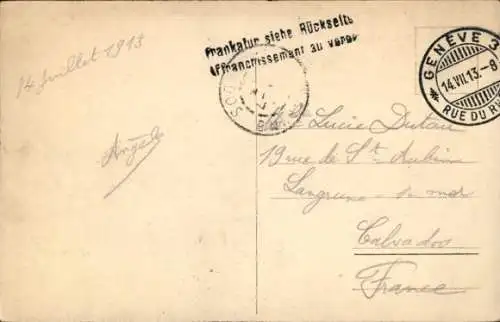 14 Juillet 1913
Frankatur siehe Rückseite
Affranchissement au verso
GENÈVE 3
14.VII.13.–8
RUE DU R
Angèle
Mlle Lucie Dutau
19 rue de St. Aubin
Langrune s. mer
Calvados
France